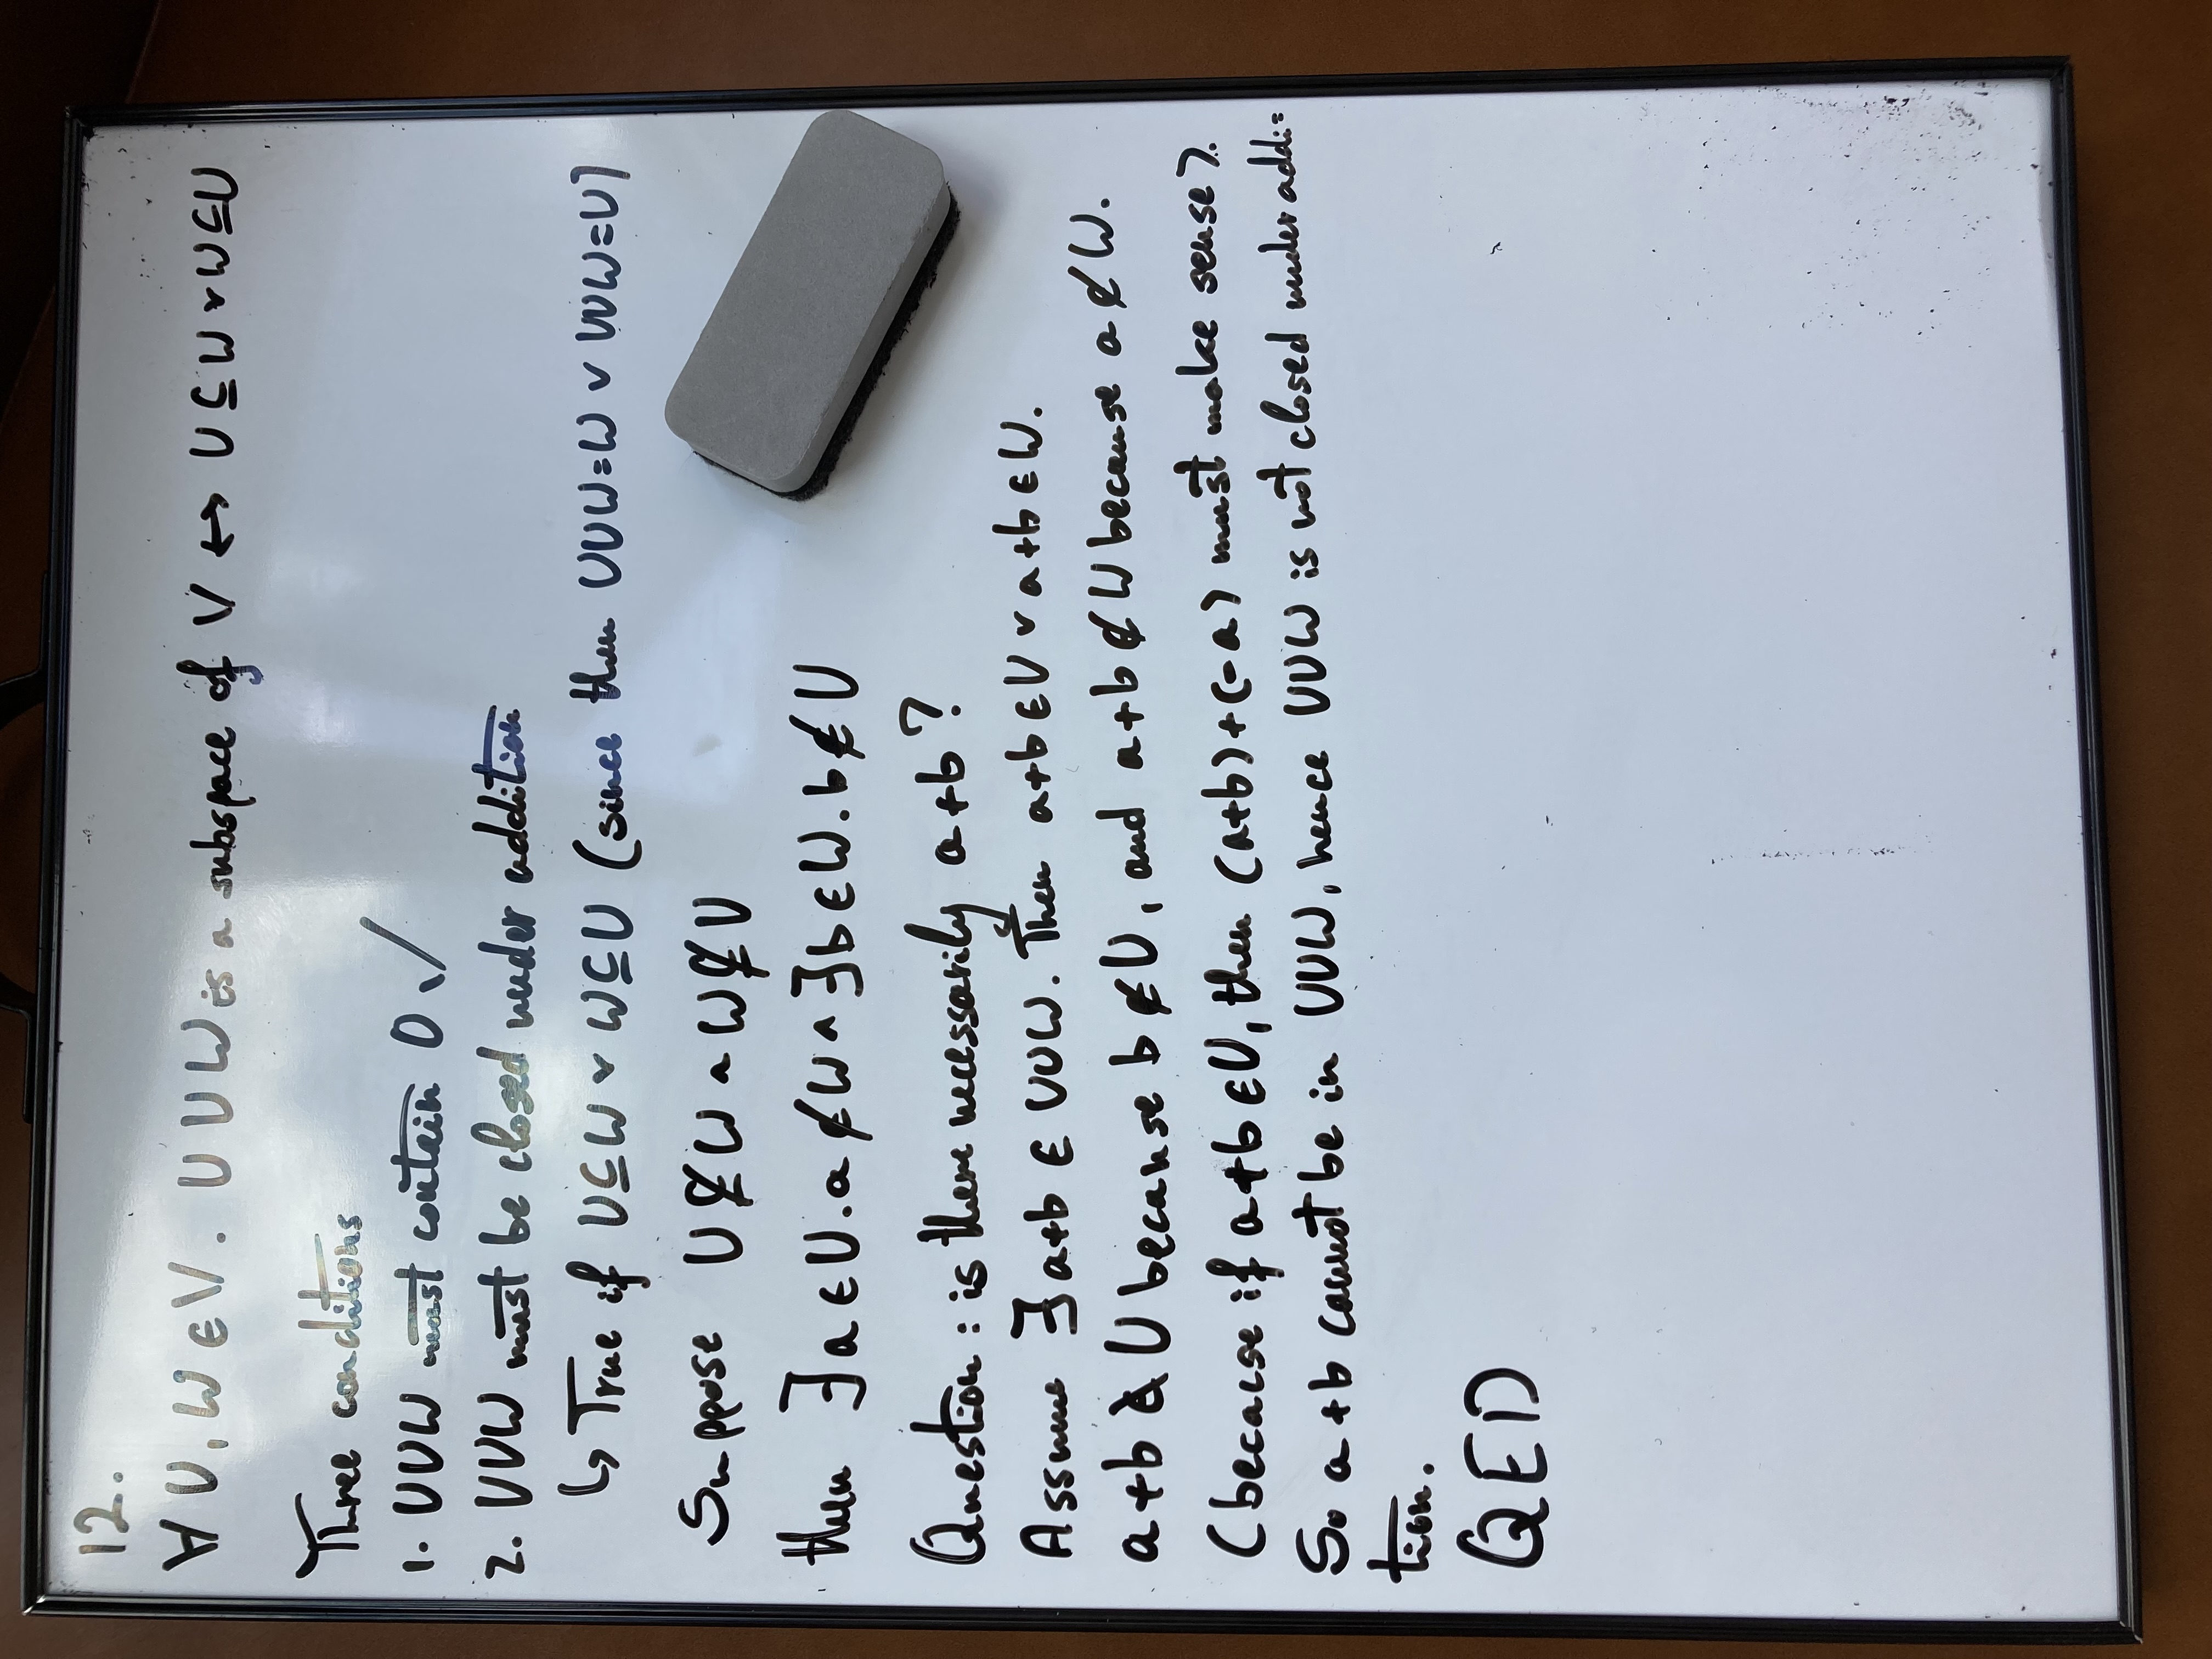 12.
∀ U, W ∈ V. U ∪ W is a subspace of V ↔ U ⊆ W ∨ W ⊆ U
Three conditions
1. U∪W must contain 0 ✓
2. U∪W must be closed under addition
↳ True if U⊆W ∨ W⊆U (since then U∪W=W ∨ U∪W=U)
Suppose U⊈W ∧ W⊈U
then ∃a∈U.a∉W ∧ ∃b∈W.b∉U
Question: is there necessarily a+b?
Assume ∃a+b ∈ U∪W. Then a+b∈U ∨ a+b∈W.
a+b ∉ U because b∉U, and a+b∉W because a∉W.
(because if a+b∈U, then (a+b)+(-a) must make sense).
So a+b cannot be in U∪W, hence U∪W is not closed under addi=
tion.
QED